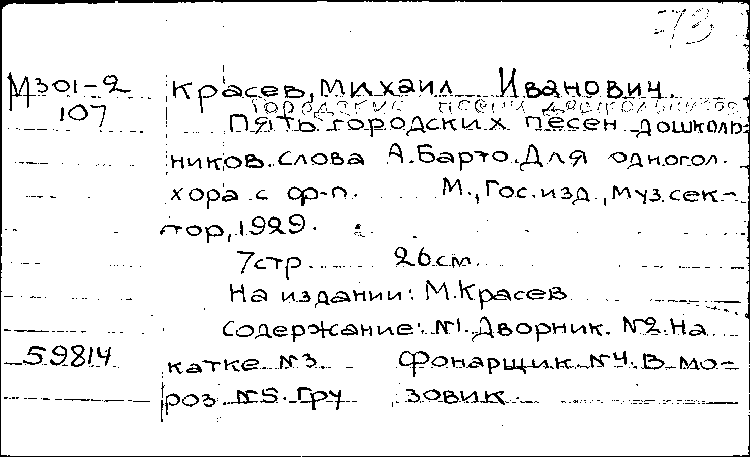 73
М301-2
107
Красев, Михаил Иванович.
Городские песни дошкольников
Пять городских песен дошколь-
ников. слова А. Барто. Для одногол.
хора с ф-п. М., Гос. изд., муз. сек-
тор, 1929.
7 стр. 26 см.
На издании: М. Красев
Содержание: №1. Дворник. №2. На
59814
катке №3. Фонарщик №4. В мо-
роз №5. Гру зовик.